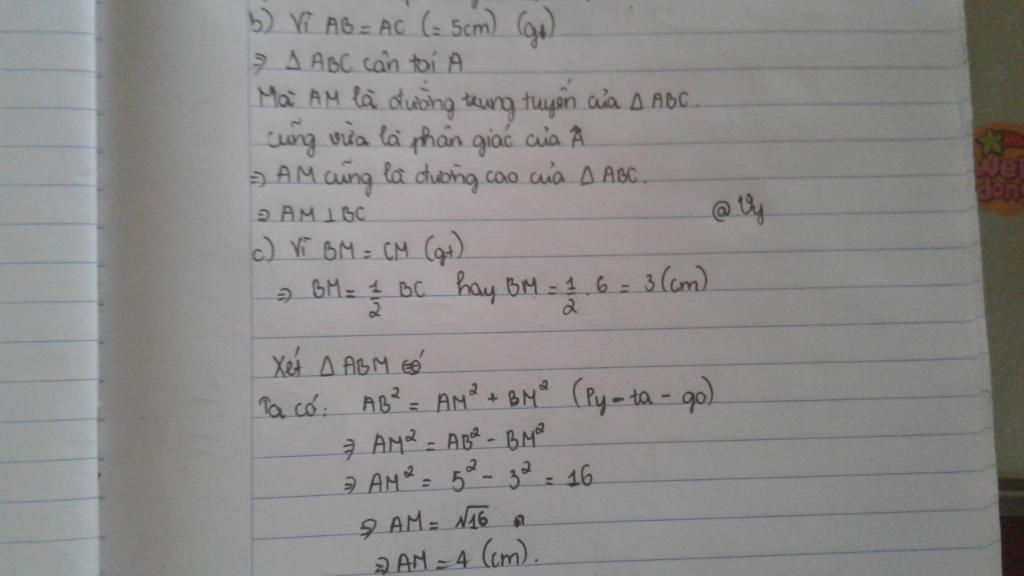 b) Vì AB = AC (= 5cm) (gt)
⇒ Δ ABC cân tại A
Mà AM là đường trung tuyến của Δ ABC.
cũng vừa là phân giác của Â
⇒ AM cũng là đường cao của Δ ABC.
⇒ AM ⊥ BC @ Vy
c) Vì BM = CM (gt)
⇒ BM = 1/2 BC hay BM = 1/2 . 6 = 3 (cm)
Xét Δ ABM
Ta có: AB² = AM² + BM² (Py-ta-go)
⇒ AM² = AB² - BM²
⇒ AM² = 5² - 3² = 16
⇒ AM = √16
⇒ AM = 4 (cm).